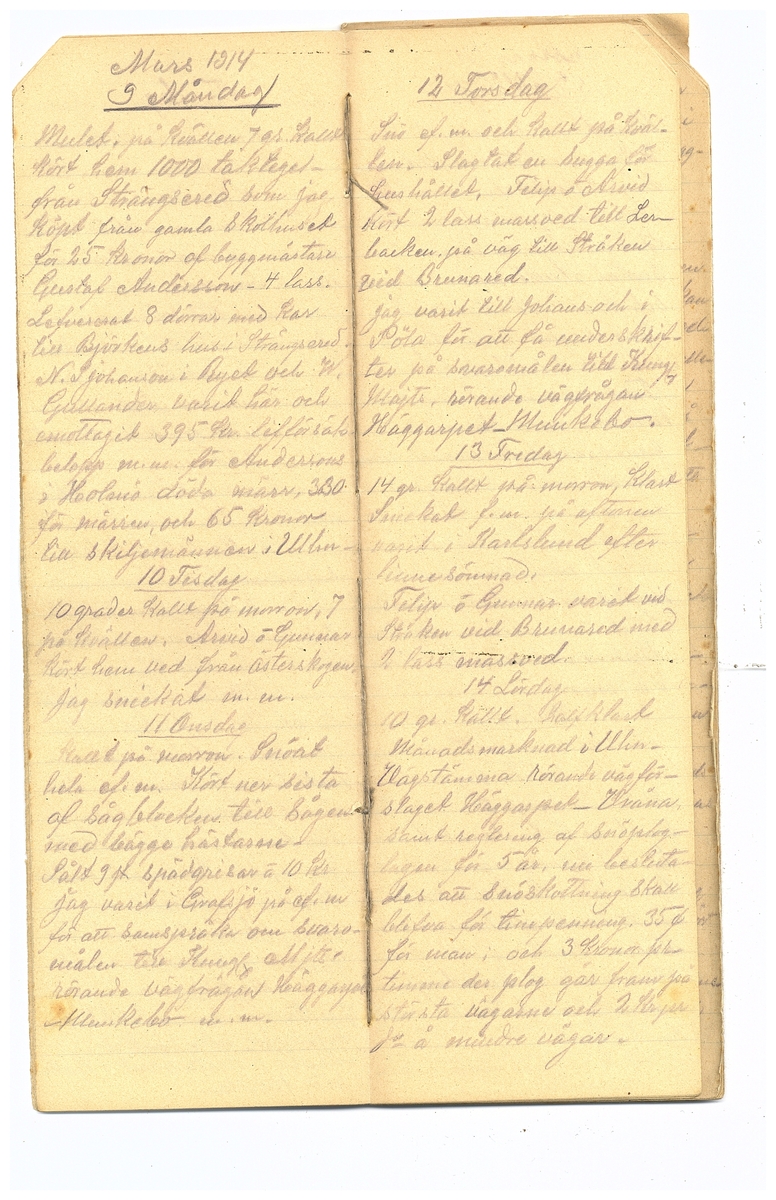 Mars 1914
9 Måndag
Mulet, på kvällen 7 gr. Kallt
Kört hem 1000 taktegel
från Strängsered som jag
Köpt från gamla skolhuset
för 25 kronor af byggmästare
Gustaf Andersson – 4 lass.
Lefvererat 8 dörrar med kar
till Björkens hus i Strängsered.
N. P. Johanson i Ryet och W.
Gullander varit här och
emottagit 395 Kr. lifförsäk
belopp m.m. för Anderssons
i Holmö döda märr, 330
för märren, och 65 Kronor
till skiljemännen i Ulm –
10 Tisdag
10 grader Kallt på morron, 7
på kvällen. Arvid å Gunnar
Kört hem ved från österskogen,
Jag snickat m. m.
11 Onsdag
Kallt på morron. Snöat
hela ef. m. Kört ner sista
af sågblocken till Sågen
med bägge hästarne –
Sålt 9 st spädgrisar à 10 Kr
jag varit i Grafsjö på ef. m
för att samspråka om svaro-
målen till Kungl. Majts.
rörande vägfrågan Häggarpet
– Munkebo m. m.
12 Torsdag
Snö ef. m. och Kallt på Kväl-
len. Slagtat en bagga för
hushållet. Felip å Arvid
Kört 2 lass massved till Ler-
backen, på väg till Stråken
vid Brunared.
jag varit till Johans och i
Påla för att få underskrif-
ter på svaromålen till Kungl
Majts. rörande vägfrågan
Häggarpet – Munkebo.
13 Fredag
14 gr. Kallt på morron, Klart
Snickat f. m. på aftonen
varit i Karlslund efter
linnesömnad.
Felip å Gunnar varit vid
Stråken vid Brunared med
2 lass massved.
14 Lördag
10 gr. Kallt. Halfklart
Månadsmarknad i Ulm –
Vägstämma rörande vägför-
slaget Häggarpet – Vråna,
samt reglering af snöplog-
lagen för 5 år, nu besluta-
des att snöskottning skall
blifva för timpenning. 35 ö
för man, och 3 Kronor pr
timme der plog går fram på
största vägarne och 2 Kr pr
do å mindre vägar.